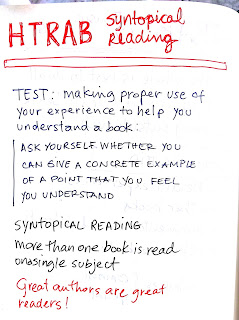 HTRAB Syntopical
Reading
TEST: making proper use of
your experience to help you
understand a book:
ASK YOURSELF WHETHER YOU
CAN GIVE A CONCRETE EXAMPLE
OF A POINT THAT YOU FEEL
YOU UNDERSTAND
SYNTOPICAL READING
more than one book is read
on a single subject
Great authors are great
readers!